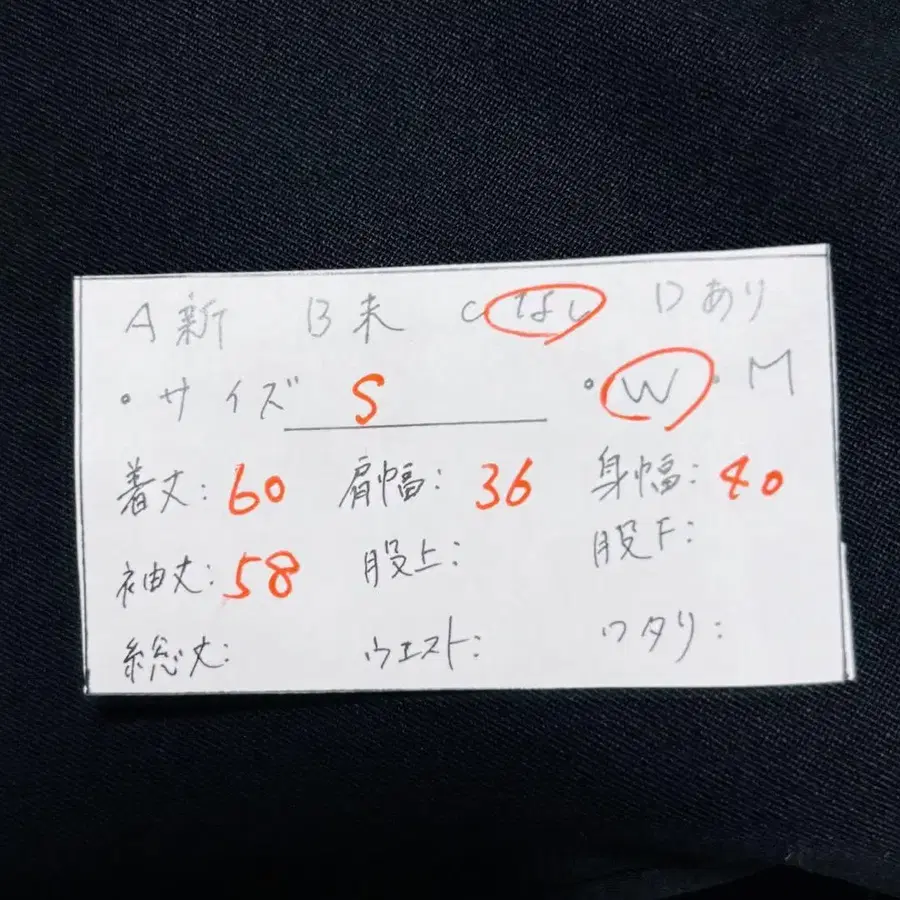 A 新 B 未 C なし D あり
・サイズ S ・W・M
着丈: 60 肩幅: 36 身幅: 40
袖丈: 58 股上: 股下:
総丈: ウエスト: ワタリ: